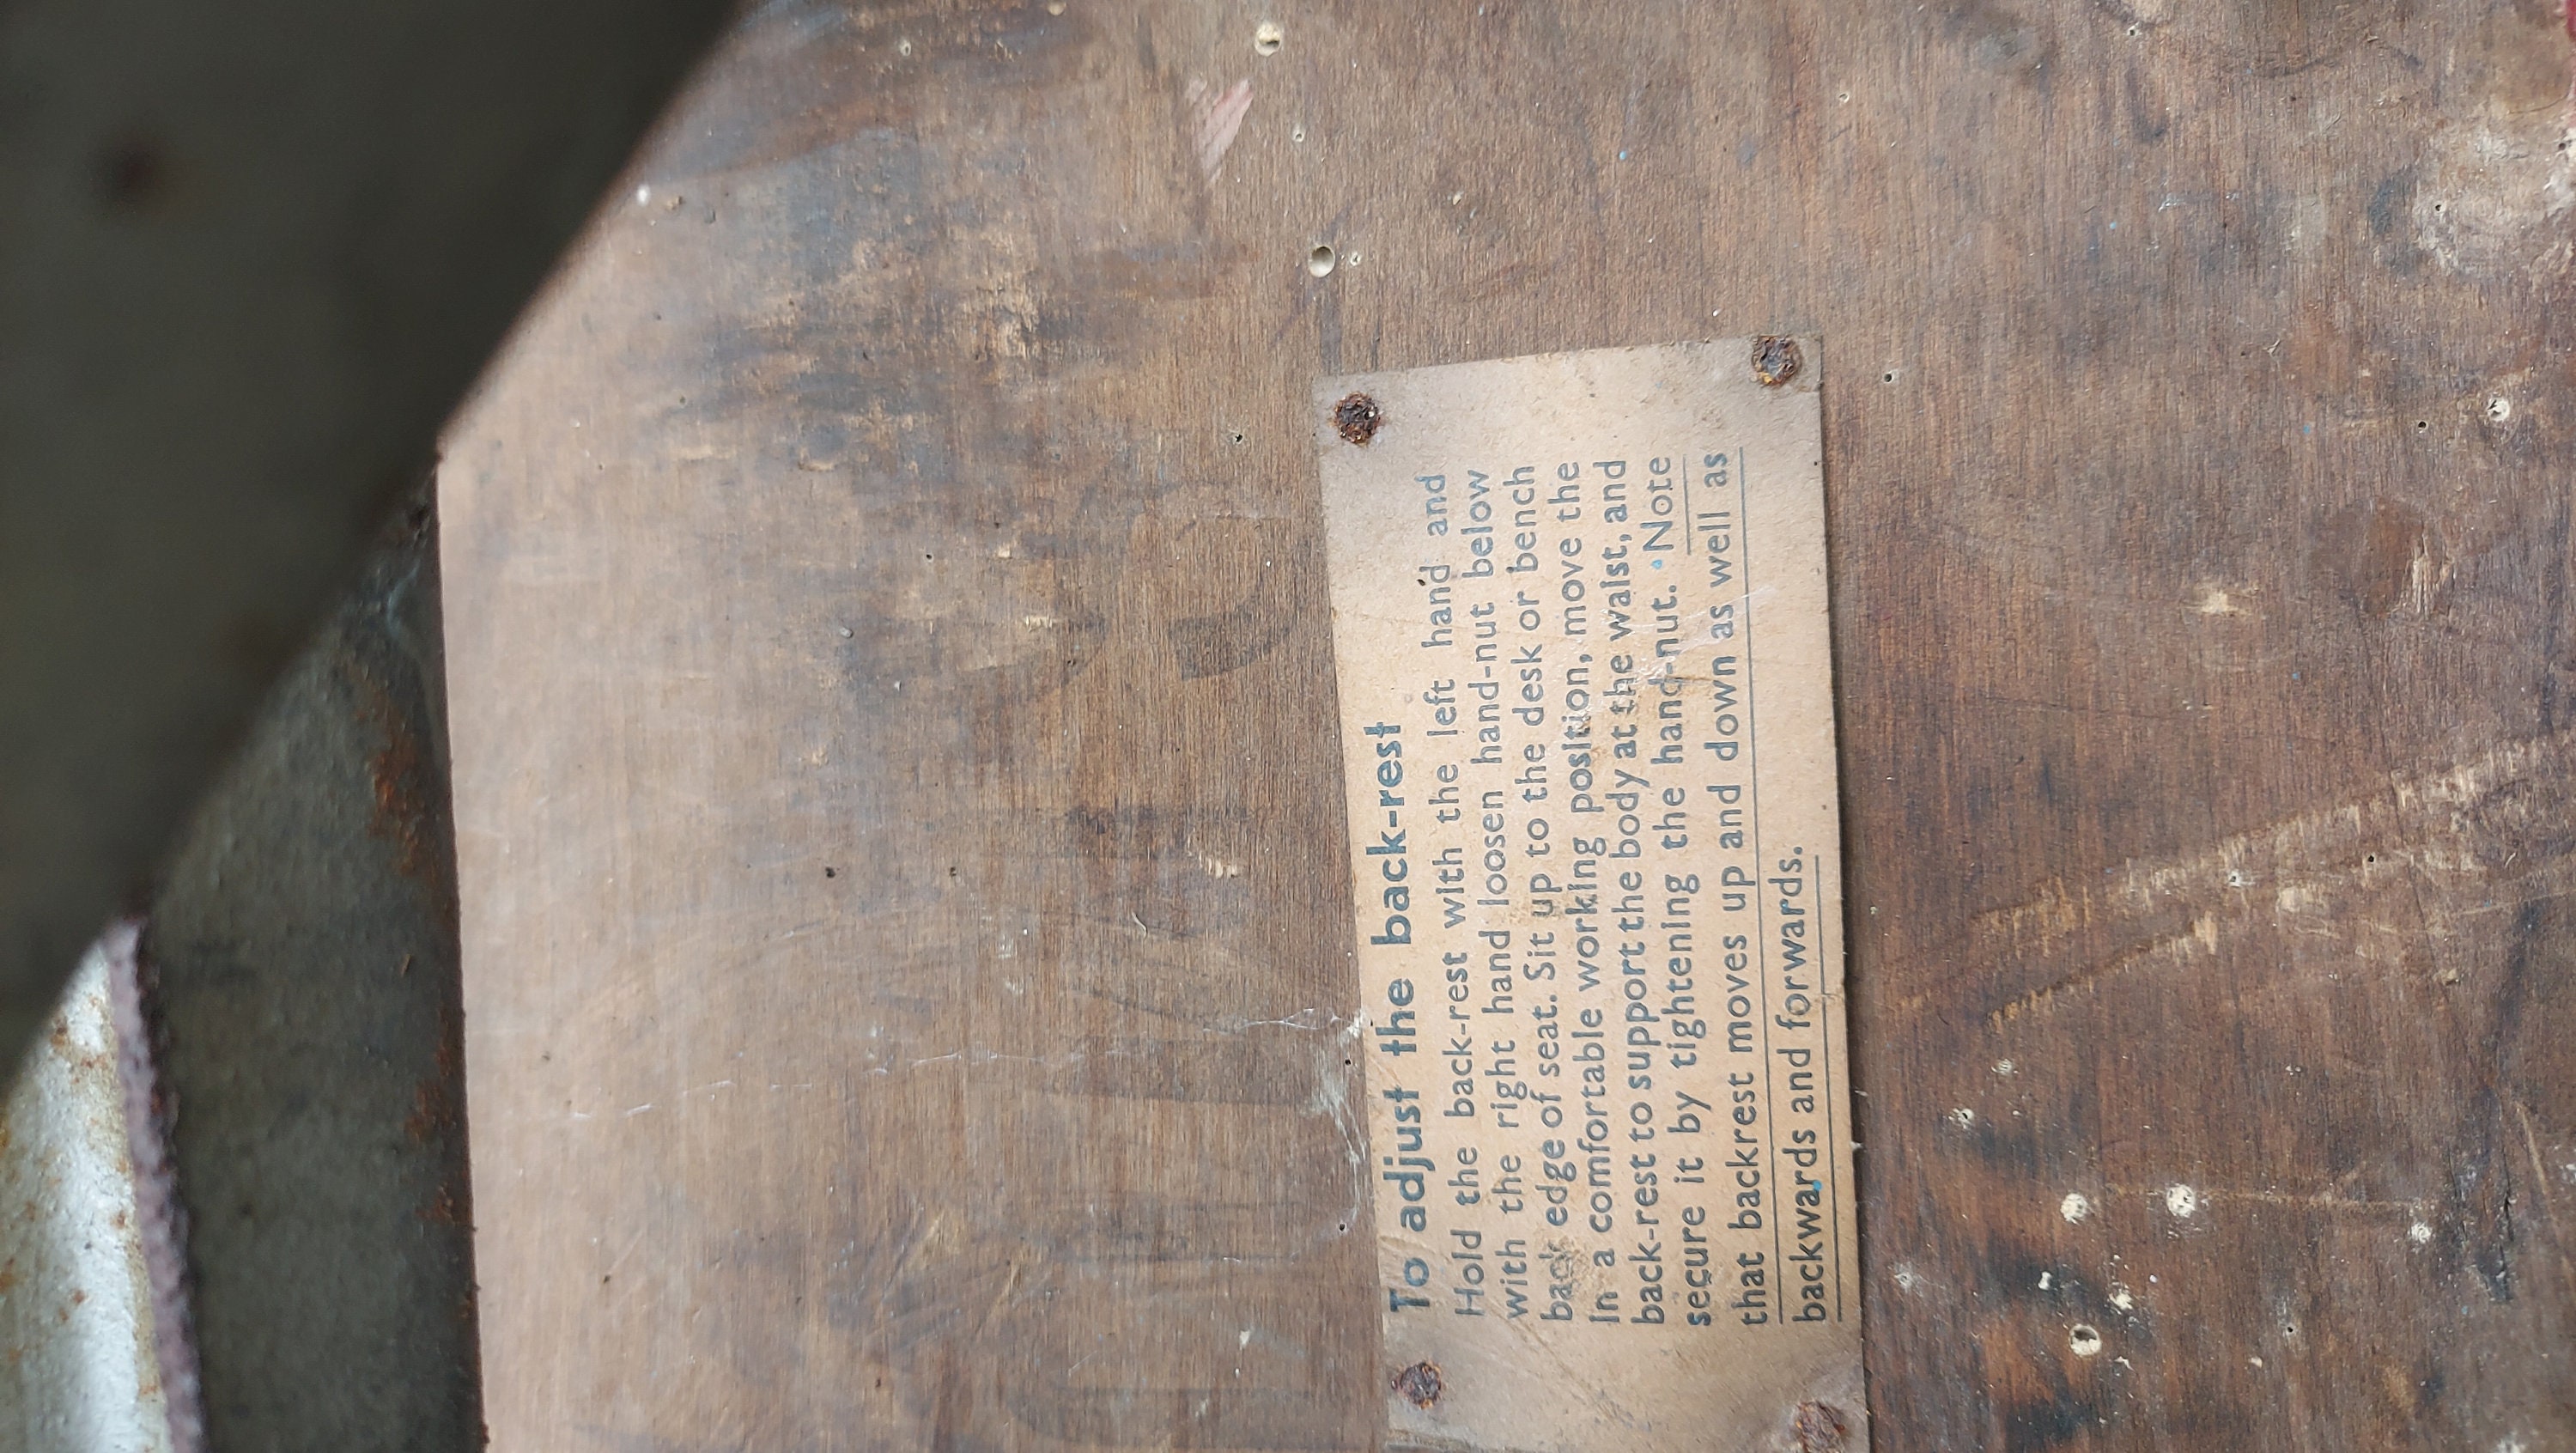 To adjust the back-rest
Hold the back-rest with the left hand and
with the right hand loosen hand-nut below
back edge of seat. Sit up to the desk or bench
in a comfortable working position, move the
back-rest to support the body at the waist, and
secure it by tightening the hand-nut. Note
that backrest moves up and down as well as
backwards and forwards.